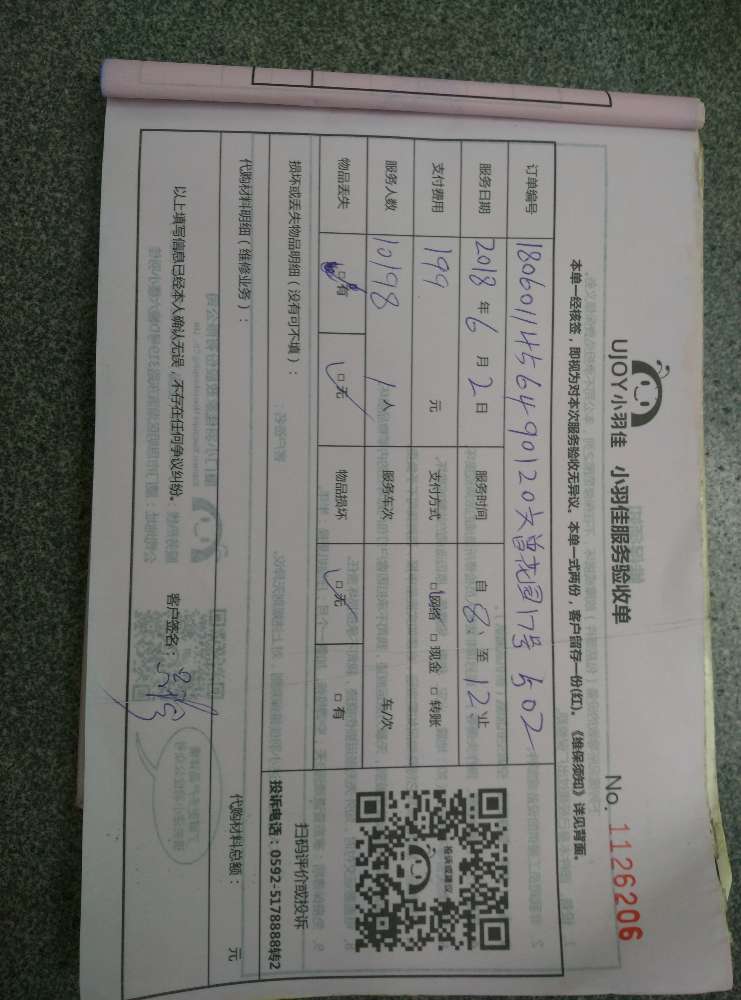 UJOY小羽佳 小羽佳服务验收单
No. 1126206
本单一经核签，即视为对本次服务验收无异议。本单一式两份，客户留存一份(红)。《维保须知》详见背面。
订单编号 180601145649012 0文曾花园17号 502
服务日期 2018年6月2日 服务时间 自8、至12、止
支付费用 199 元 支付方式 □网络 □现金 □转账
服务人数 10198 1人 服务车次 车/次
物品丢失 □有 □无 物品损坏 □无 □有
损坏或丢失物品明细（没有可不填）：
扫码评价或投诉
投诉电话：0592-5178888转2
投诉或建议
代购材料明细（维修业务）： 代购材料总额： 元
以上填写信息已经本人确认无误，不存在任何争议纠纷。 客户签名：